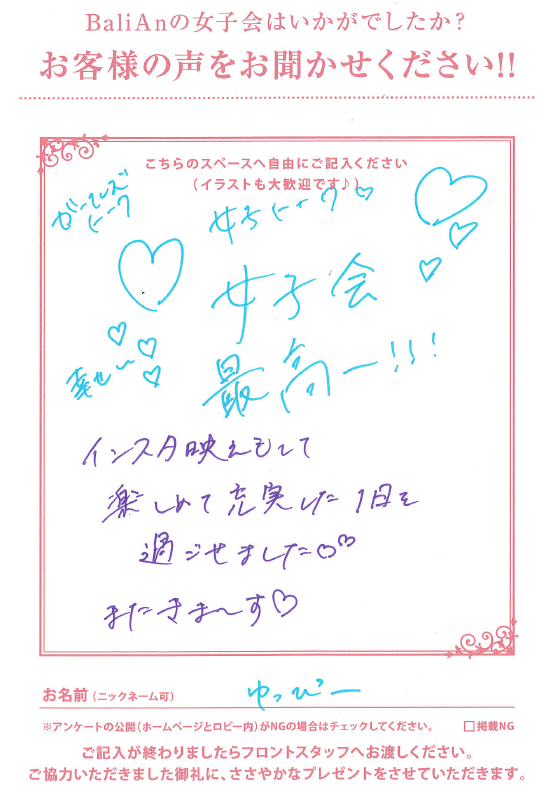 BaliAnの女子会はいかがでしたか？
お客様の声をお聞かせください!!
こちらのスペースへ自由にご記入ください
（イラストも大歓迎です♪）
ガールズ
トーク
女子トーク♡
女子会
最高ー!!!
幸せ〜
インスタ映えもして
楽しめて充実した1日を
過ごせました♡♡
またきま〜す♡
お名前（ニックネーム可）
ゆっぴー
※アンケートの公開（ホームページとロビー内）がNGの場合はチェックしてください。
□掲載NG
ご記入が終わりましたらフロントスタッフへお渡しください。
ご協力いただきました御礼に、ささやかなプレゼントをさせていただきます。